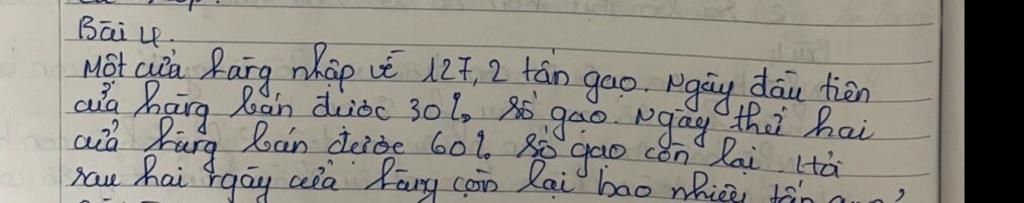 Bài 4.
Một cửa hàng nhập về 127,2 tấn gạo. Ngày đầu tiên
cửa hàng bán được 30% số gạo. Ngày thứ hai
cửa hàng bán được 60% số gạo còn lại. Hỏi
sau hai ngày cửa hàng còn lại bao nhiêu tấn